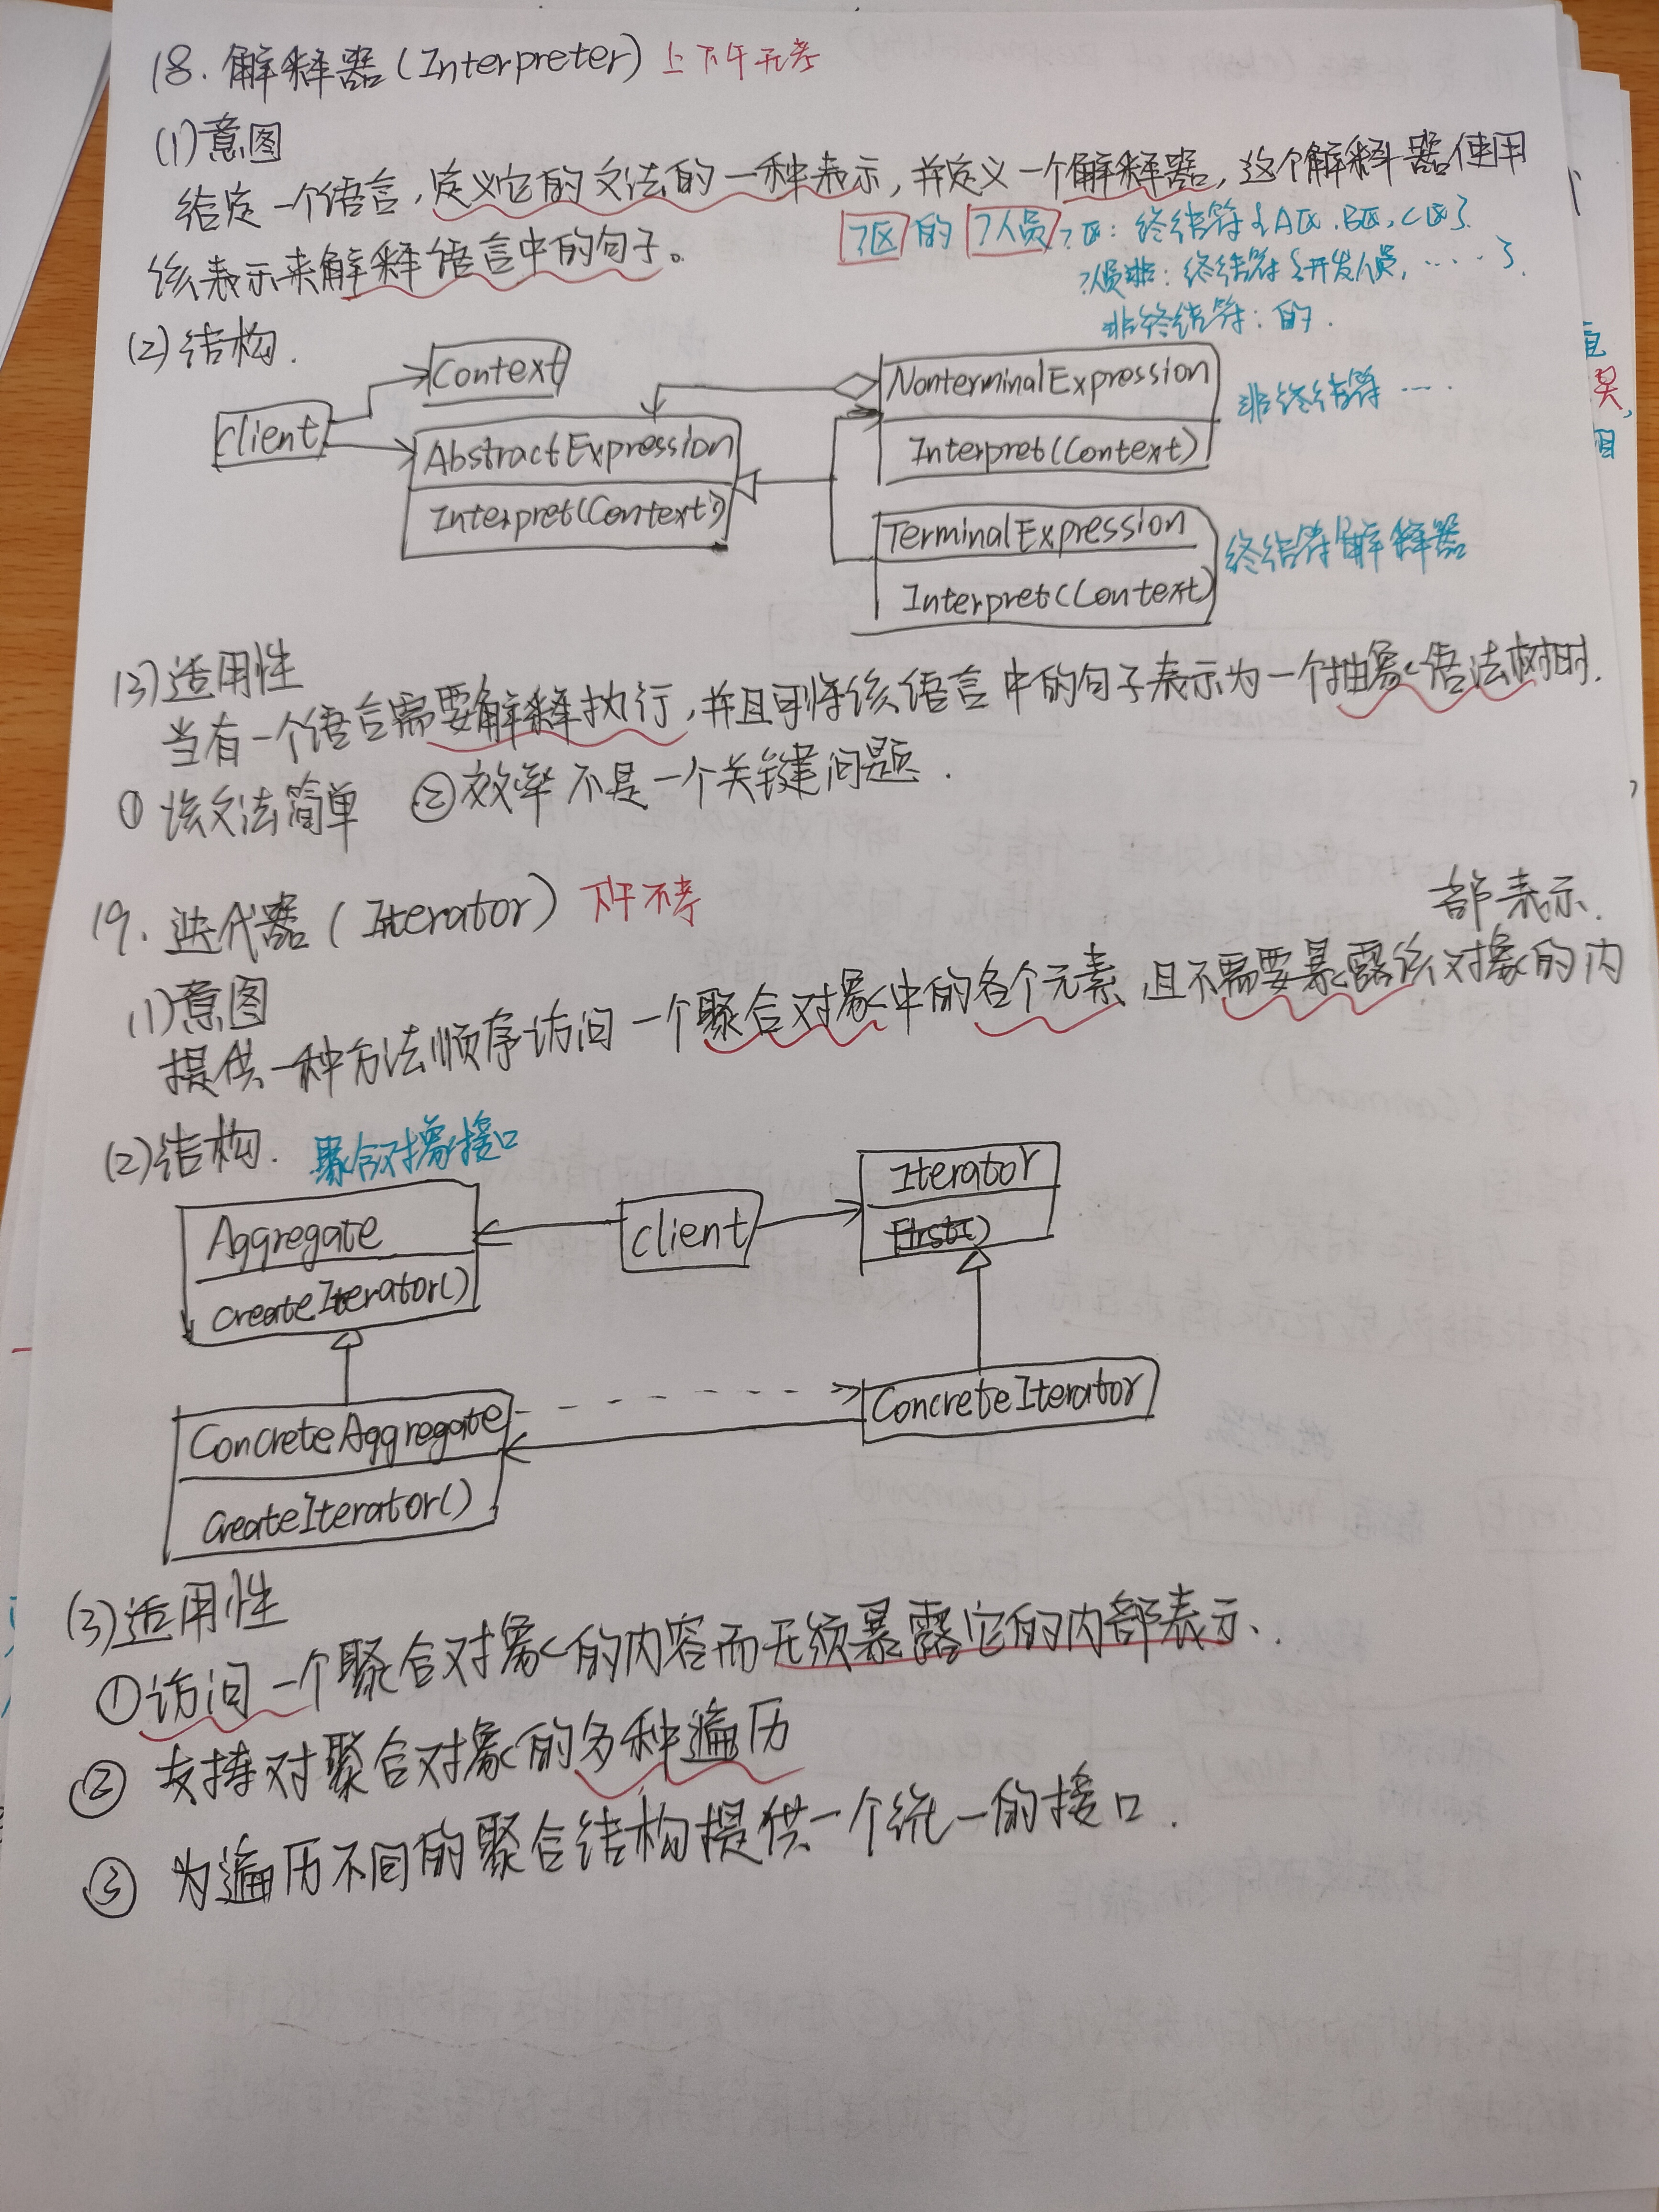 18. 解释器(Interpreter) 上下午无考
(1)意图
给定一个语言,定义它的文法的一种表示,并定义一个解释器,这个解释器使用
该表示来解释语言中的句子。
?区 的 ?人员 ?区: 终结符{A区.B区,C区}.
?人员: 终结符{开发人员, ....}.
非终结符: 的.
(2)结构.
Context
client
AbstractExpression
Interpret(Context)
NonterminalExpression
Interpret(Context)
非终结符 ...
TerminalExpression
Interpret(Context)
终结符解释器
(3)适用性
当有一个语言需要解释执行,并且可将该语言中的句子表示为一个抽象语法树时.
① 该文法简单 ②效率不是一个关键问题.
19. 迭代器(Iterator) 下午不考
(1)意图
提供一种方法顺序访问一个聚合对象中的各个元素,且不需要暴露该对象的内
部表示.
(2)结构. 聚合对象接口
Aggregate
createIterator()
client
Iterator
ConcreteAggregate
createIterator()
ConcreteIterator
(3)适用性
①访问一个聚合对象的内容而无须暴露它的内部表示.
② 支持对聚合对象的多种遍历
③ 为遍历不同的聚合结构提供一个统一的接口.